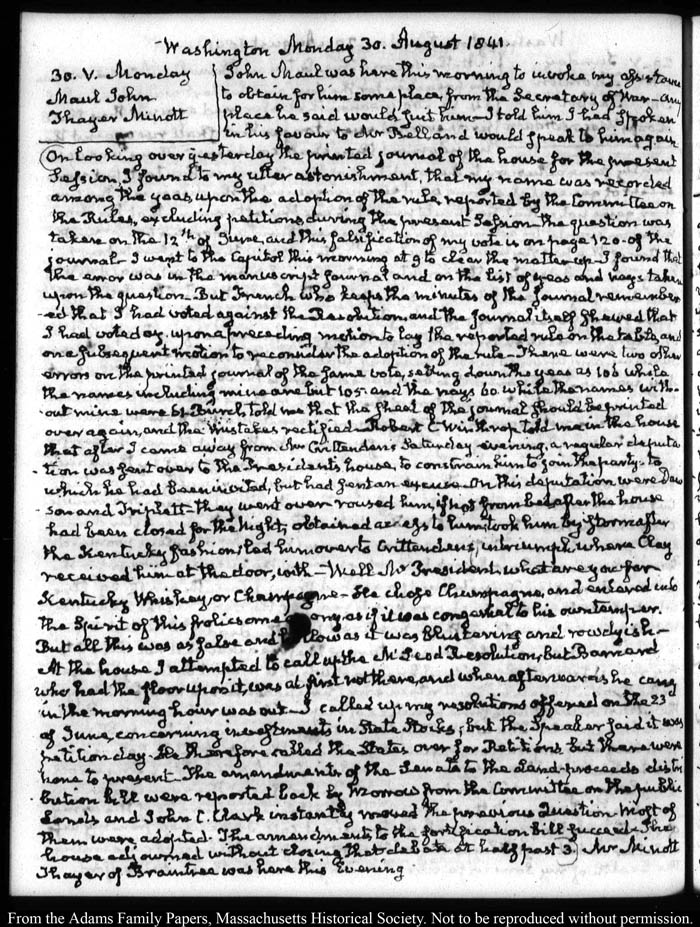 Washington Monday 30. August 1841.
30. V. Monday
Maul John
Thayer Minott
John Maul was here this morning to invoke my assistance
to obtain for him some place, from the Secretary of War – any
place he said would suit him – I told him I had spoken
in his favour to Mr Bell and would speak to him again
On looking over yesterday the printed journal of the house for the present
Session, I found to my utter astonishment, that my name was recorded
among the yeas, upon the adoption of the rule, reported by the Committee on
the Rules, excluding petitions during the present Session – the question was
taken on the 12th of June, and this falsification of my vote is on page 120 of the
journal – I went to the Capitol this morning at 9 to clear the matter up. I found that
the error was in the manuscript journal and on the list of yeas and nays taken
upon the question – But French who keeps the minutes of the Journal remember
-ed that I had voted against the Resolution, and the journal itself shewed that
I had voted ay, upon a preceding motion to lay the reported rule on the table, and
on a subsequent motion to reconsider the adoption of the rule – There were two other
errors on the printed journal of the same vote, setting down the yeas as 106 while
the names including mine are but 105 – and the nays 60 while the names with-
out mine were 61. Burch told me that the sheet of the journal should be printed
over again, and the mistakes rectified – Robert C Winthrop told me in the house
that after I came away from Mr Crittenden's Saturday evening, a regular deputa
-tion was sent over to the President's house, to constrain him to join the party – to
which he had been invited, but had sent an excuse – On this deputation were Daw
son and Triplett – they went over roused him, if not from bed after the house
had been closed for the Night, obtained access to him; took him by storm after
the Kentucky fashion; led him over to Crittenden's, in triumph, where Clay
received him at the door, with – Well Mr President, what are you for
Kentucky Whiskey, or Champagne – He chose Champagne, and entered into
the Spirit of this frolicsome as if it was congenial to his own temper.
But all this was as false and hollow as it was blustering and rowdyish –
At the house I attempted to call up the McLeod Resolution, but Barnard
who had the floor upon it, was at first not there, and when afterwards he came
in the morning hour was out – I called up my resolutions offered on the 23d
of June, concerning investments in State Stocks; but the Speaker said it was
petition day. He therefore called the States over for Petitions but there were
none to present – The amendments of the Senate to the Land-proceeds distri
bution bill were reported back by Morrow from the Committee on the public
Lands and John C. Clark instantly moved the previous Question. Most of
them were adopted. The amendments to the fortification Bill succeed. The
house adjourned without closing that debate at half past 3. Mr Minott
Thayer of Braintree was here this Evening.
From the Adams Family Papers, Massachusetts Historical Society. Not to be reproduced without permission.